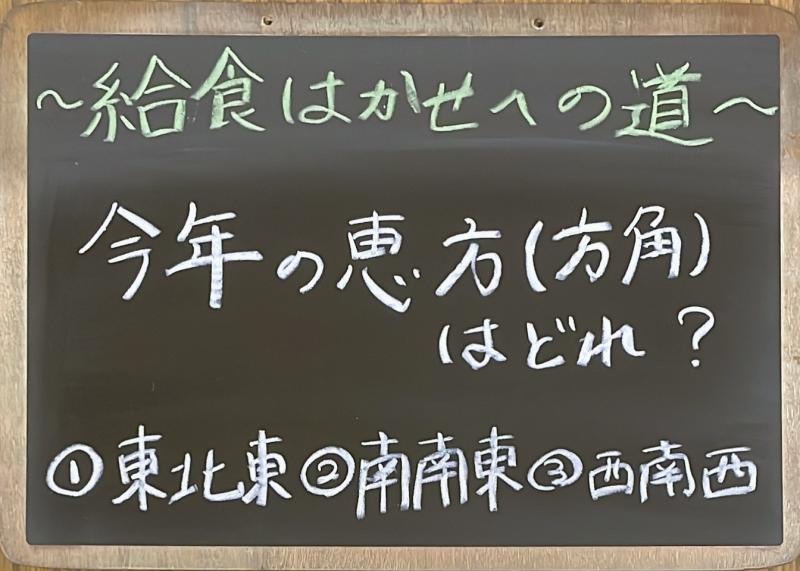 ～給食はかせへの道～
今年の恵方(方角)
はどれ？
①東北東②南南東③西南西